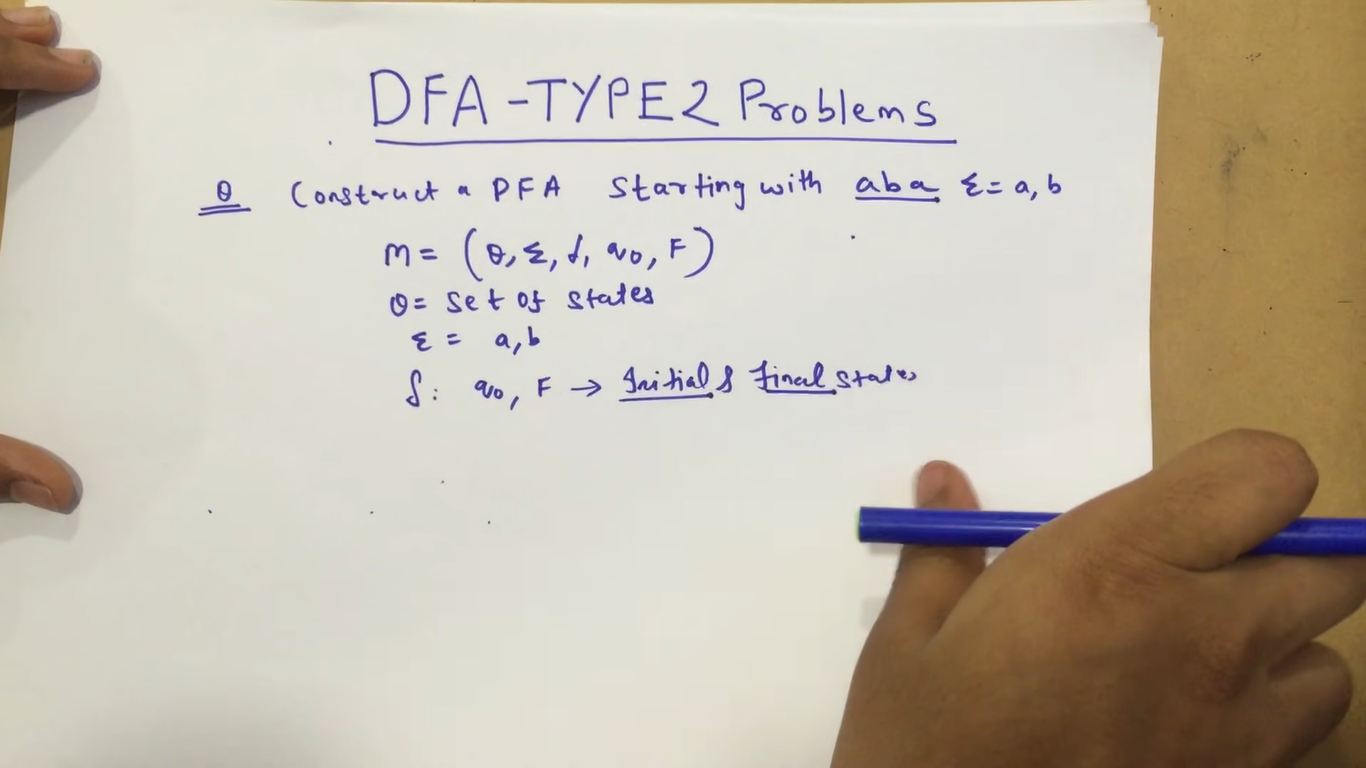 DFA-TYPE2 Problems
Q Construct a DFA Starting with aba Σ= a, b
M = (Q, Σ, δ, q0, F)
Q = Set of states
Σ = a, b
δ: q0, F → Initial & final states